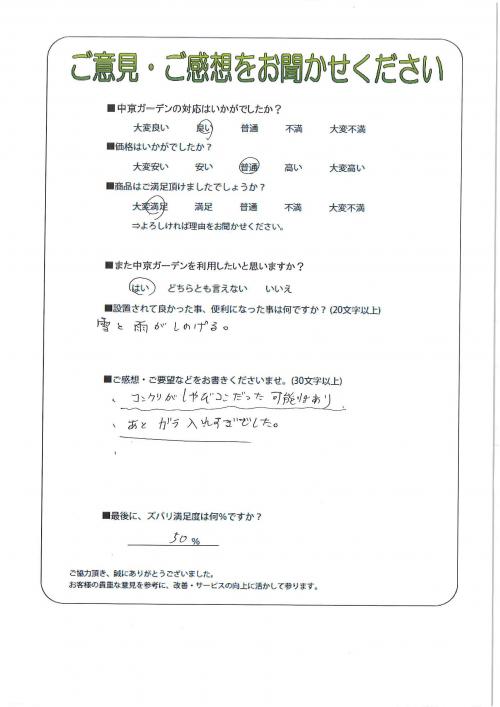 ご意見・ご感想をお聞かせください
■中京ガーデンの対応はいかがでしたか？
大変良い 良い 普通 不満 大変不満
■価格はいかがでしたか？
大変安い 安い 普通 高い 大変高い
■商品はご満足頂けましたでしょうか？
大変満足 満足 普通 不満 大変不満
⇒よろしければ理由をお聞かせください。
■また中京ガーデンを利用したいと思いますか？
はい どちらとも言えない いいえ
■設置されて良かった事、便利になった事は何ですか？(20文字以上)
雪と雨がしのげる。
■ご感想・ご要望などをお書きくださいませ。(30文字以上)
、コンクリがしゃびコンだった可能性あり
、あとガラ入れすぎでした。
■最後に、ズバリ満足度は何％ですか？
50％
ご協力頂き、誠にありがとうございました。
お客様の貴重な意見を参考に、改善・サービスの向上に活かして参ります。